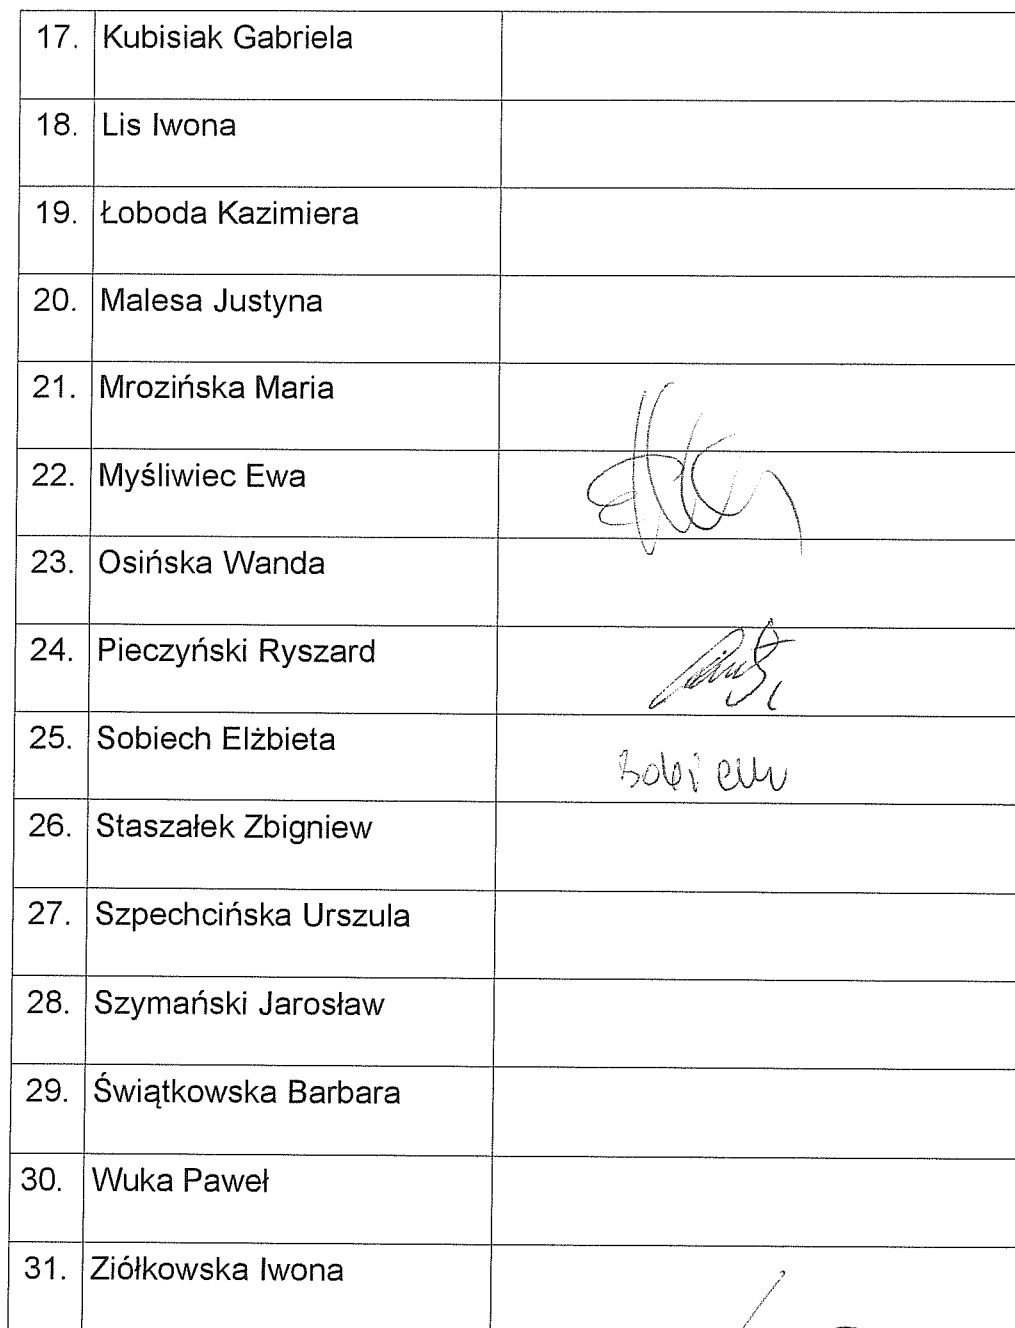 17. Kubisiak Gabriela
18. Lis Iwona
19. Łoboda Kazimiera
20. Malesa Justyna
21. Mrozińska Maria
22. Myśliwiec Ewa
23. Osińska Wanda
24. Pieczyński Ryszard
25. Sobiech Elżbieta Sobiech
26. Staszałek Zbigniew
27. Szpechcińska Urszula
28. Szymański Jarosław
29. Świątkowska Barbara
30. Wuka Paweł
31. Ziółkowska Iwona